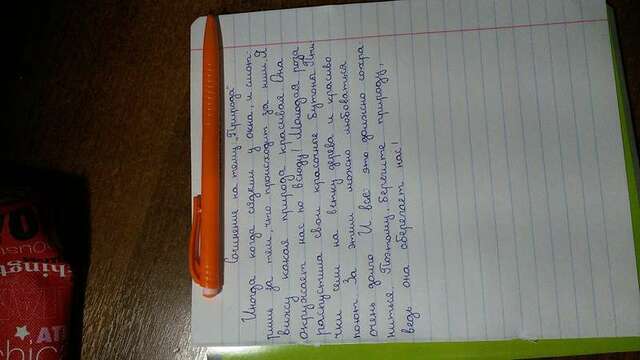 Сочинение на тему "Природа"
Иногда когда сядишь у окна, и смот-
ришь за тем, что происходит за ним. Я
вижу какая природа красивая. Она
окружает нас по всюду! Молодая роза
распустила свои красочные бутоны. Пти-
чки сели на ветку дерева и красиво
поют. За этим можно любоваться
очень долго. И все это должно сохра-
ниться. Поэтому, берегите природу,
ведь она сберегает нас!